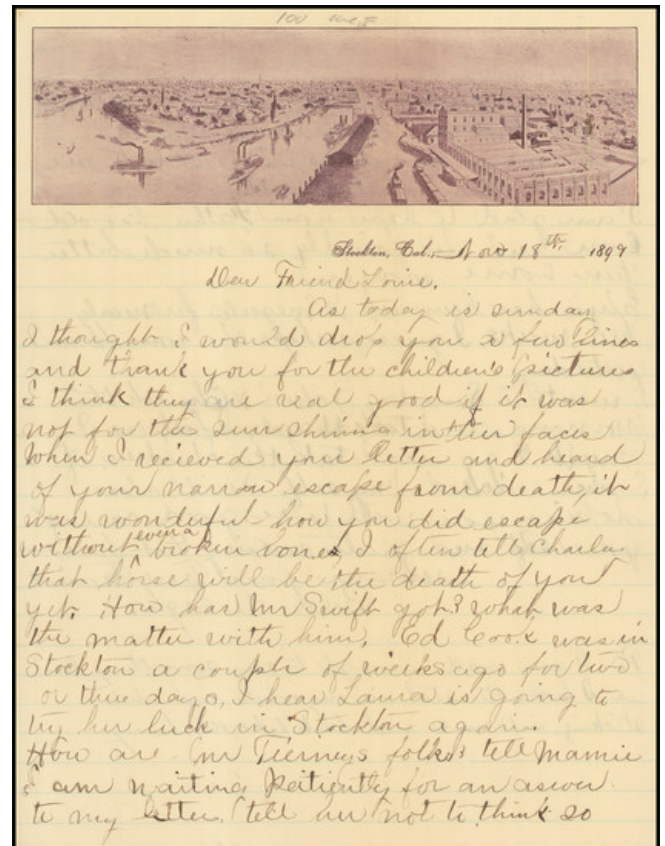 100
Stockton, Cal., Nov 18th 1899
Dear Friend Lovie,
As today is sunday
I thought I would drop you a few lines
and thank you for the children's pictures
I think they are real good if it was
not for the sun shining in their faces
When I recieved your letter and heard
of your narrow escape from death, it
was wonderful how you did escape
without even a broken bones, I often tell Charley
that horse will be the death of you
yet. How has Mr Swift got? what was
the matter with him. Ed Cook was in
Stockton a couple of weeks ago for two
or three days, I hear Laura is going to
try her luck in Stockton again.
How are Mr Tierneys folks tell Mamie
I am waiting patiently for an aswer
to my letter, tell her not to think so